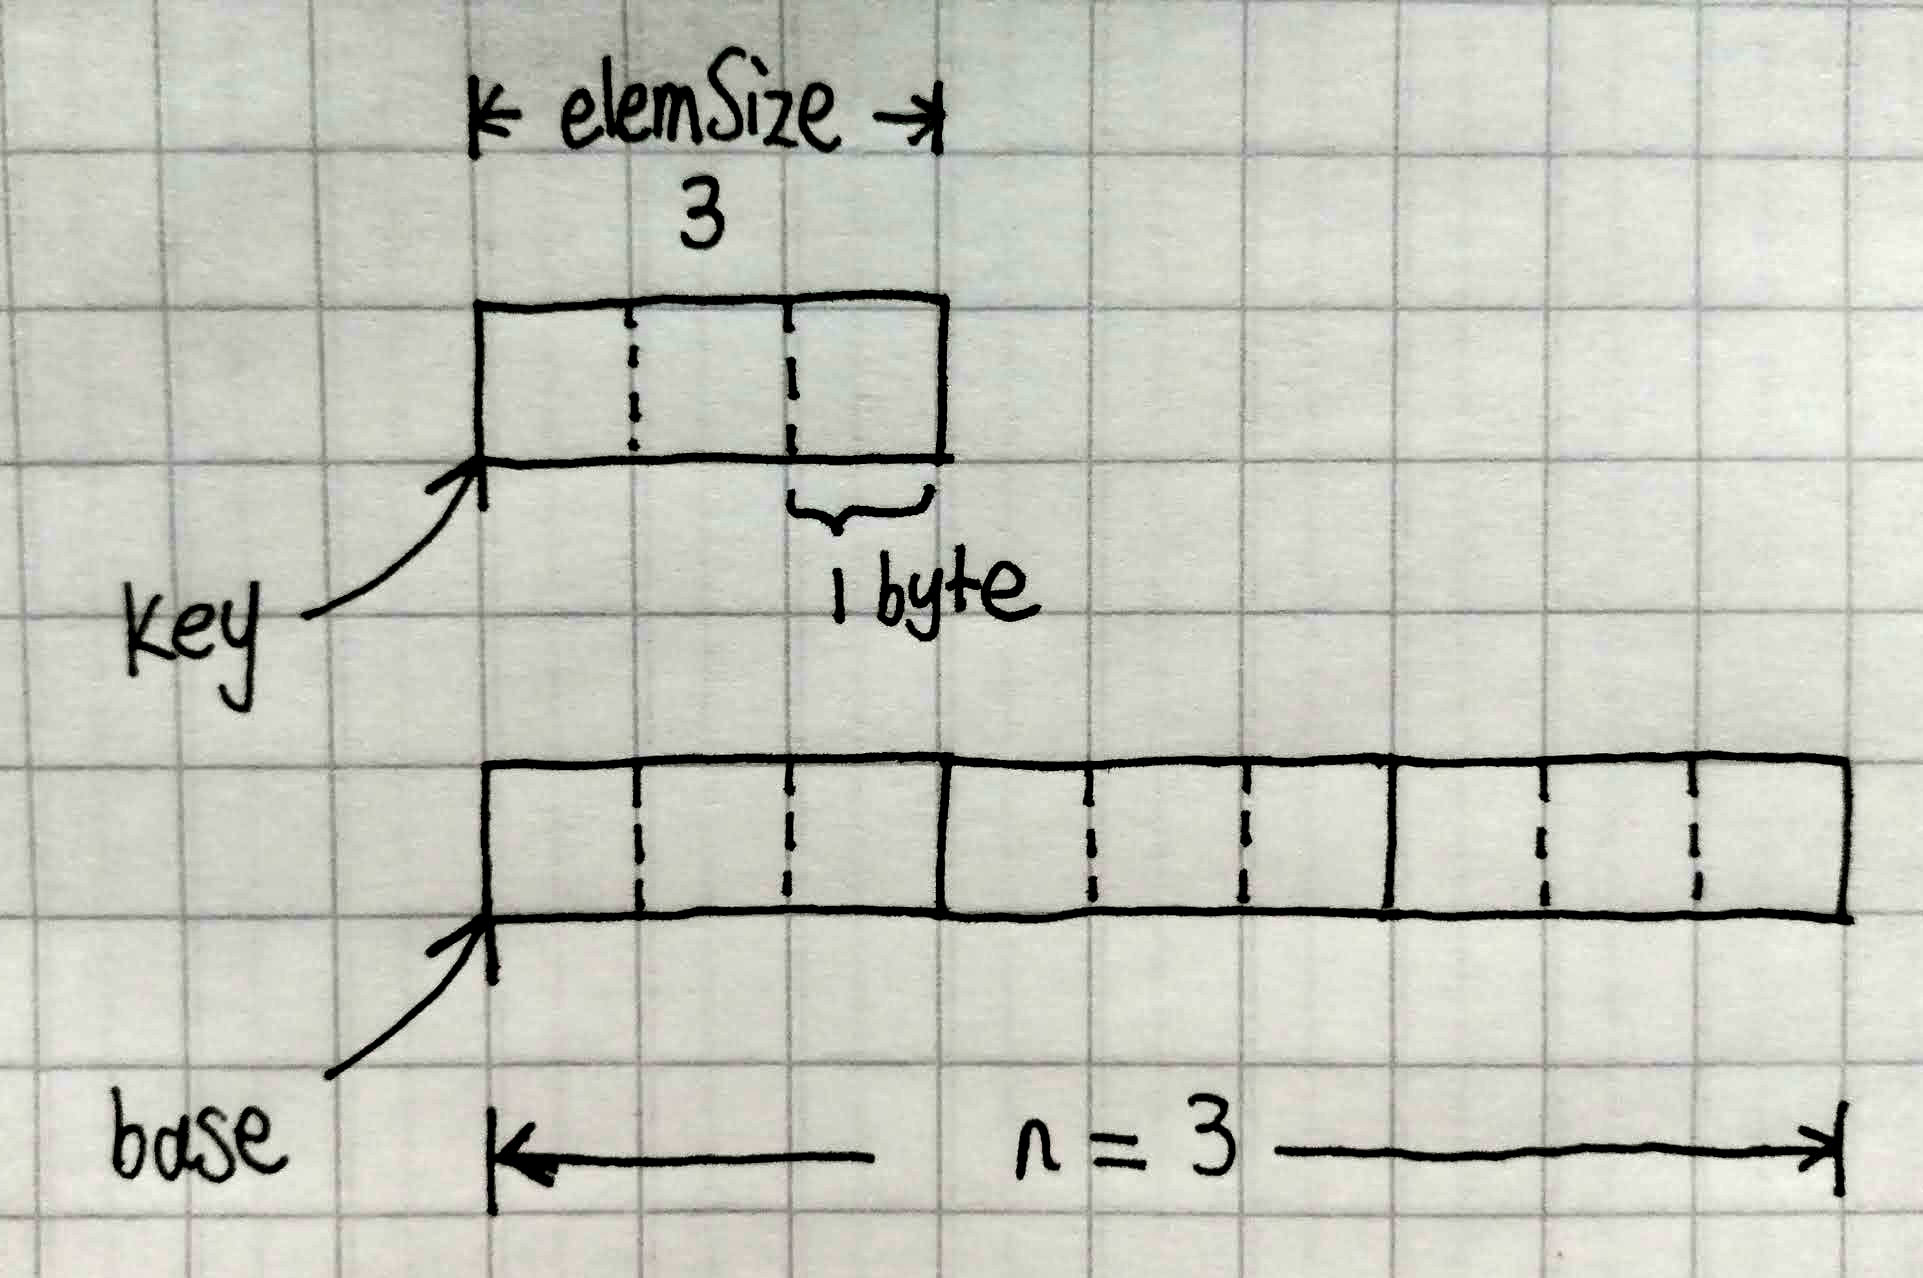 elemSize
3
1 byte
key
base
n = 3